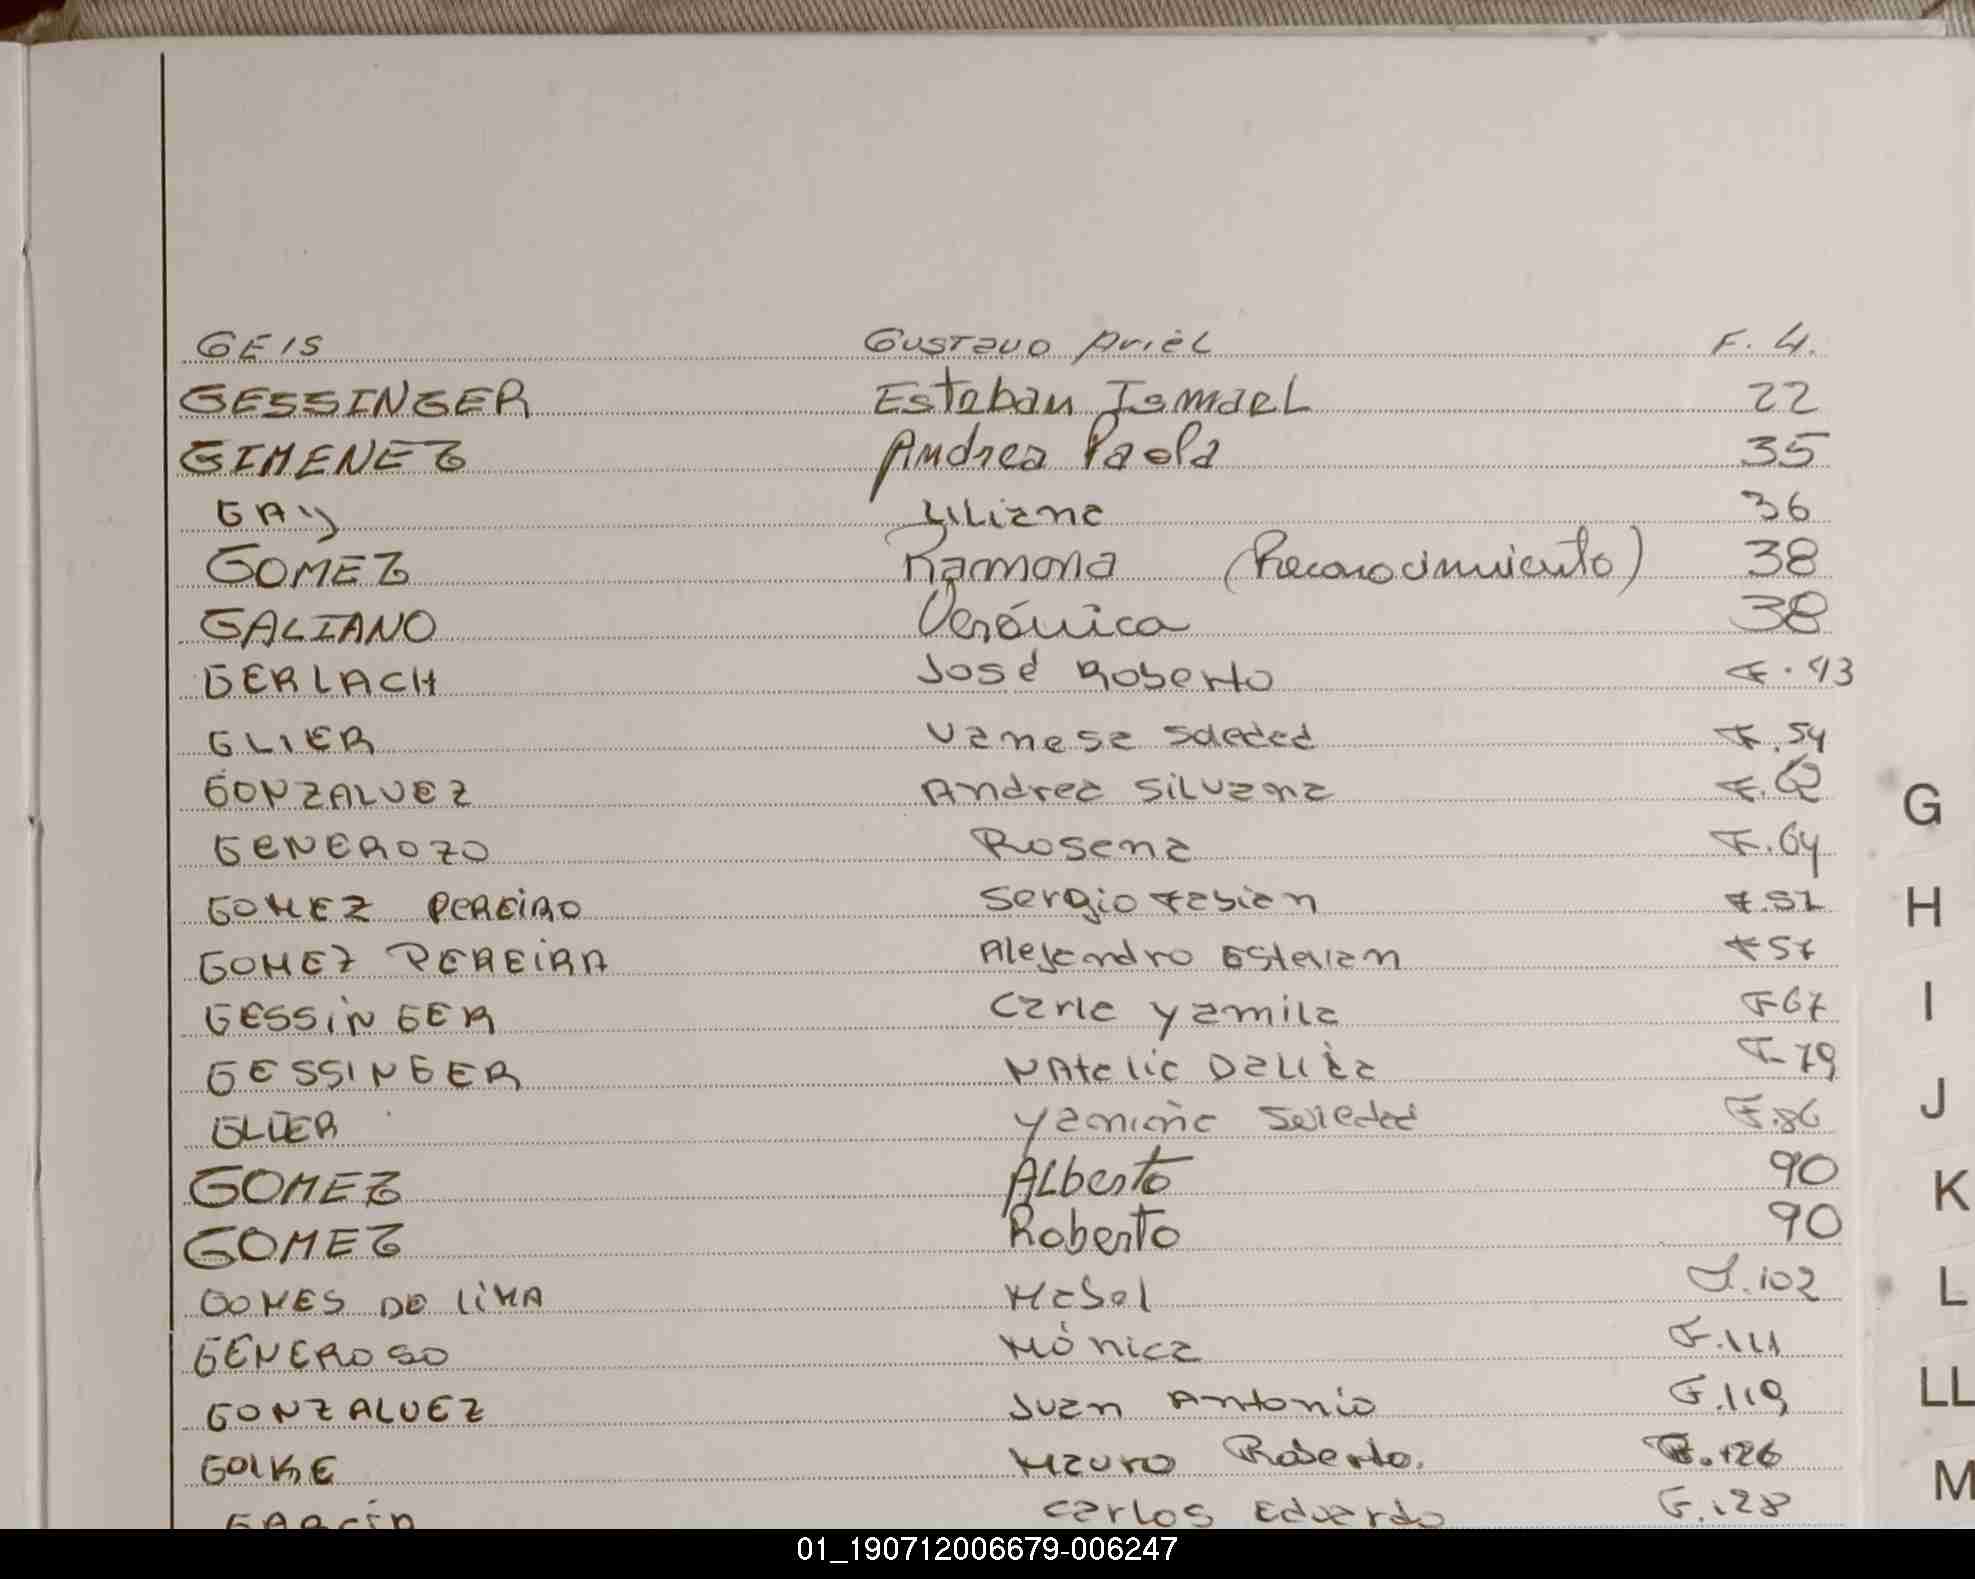 GEIS Gustavo Ariel F. 4.
GESSINGER Esteban Ismael 22
GIMENEZ Andrea Paola 35
GAY Liliana 36
GOMEZ Ramona (Reconocimiento) 38
GALIANO Verónica 38
GERLACH José Roberto F. 43
GLIER Vanesa Soledad F. 54
GONZALVEZ Andrea Silvana F. 62
GENEROZO Rosena F. 64
GOMEZ PEREIRO Sergio Fabian F. 57
GOMEZ PEREIRA Alejandro Estevan F 57
GESSINGER Carla Yamila F 67
GESSINGER Natalia Dalila F. 79
GLIER Soledad F. 86
GOMEZ Alberto 90
GOMEZ Roberto 90
GOMES DE LIMA Mabel F. 102
GENEROSO Mónica F. 111
GONZALVEZ Juan Antonio F. 119
GOLKE Mauro Roberto. F. 126
GARCÍA Carlos Eduardo F. 128
G
H
I
J
K
L
LL
M
01_190712006679-006247